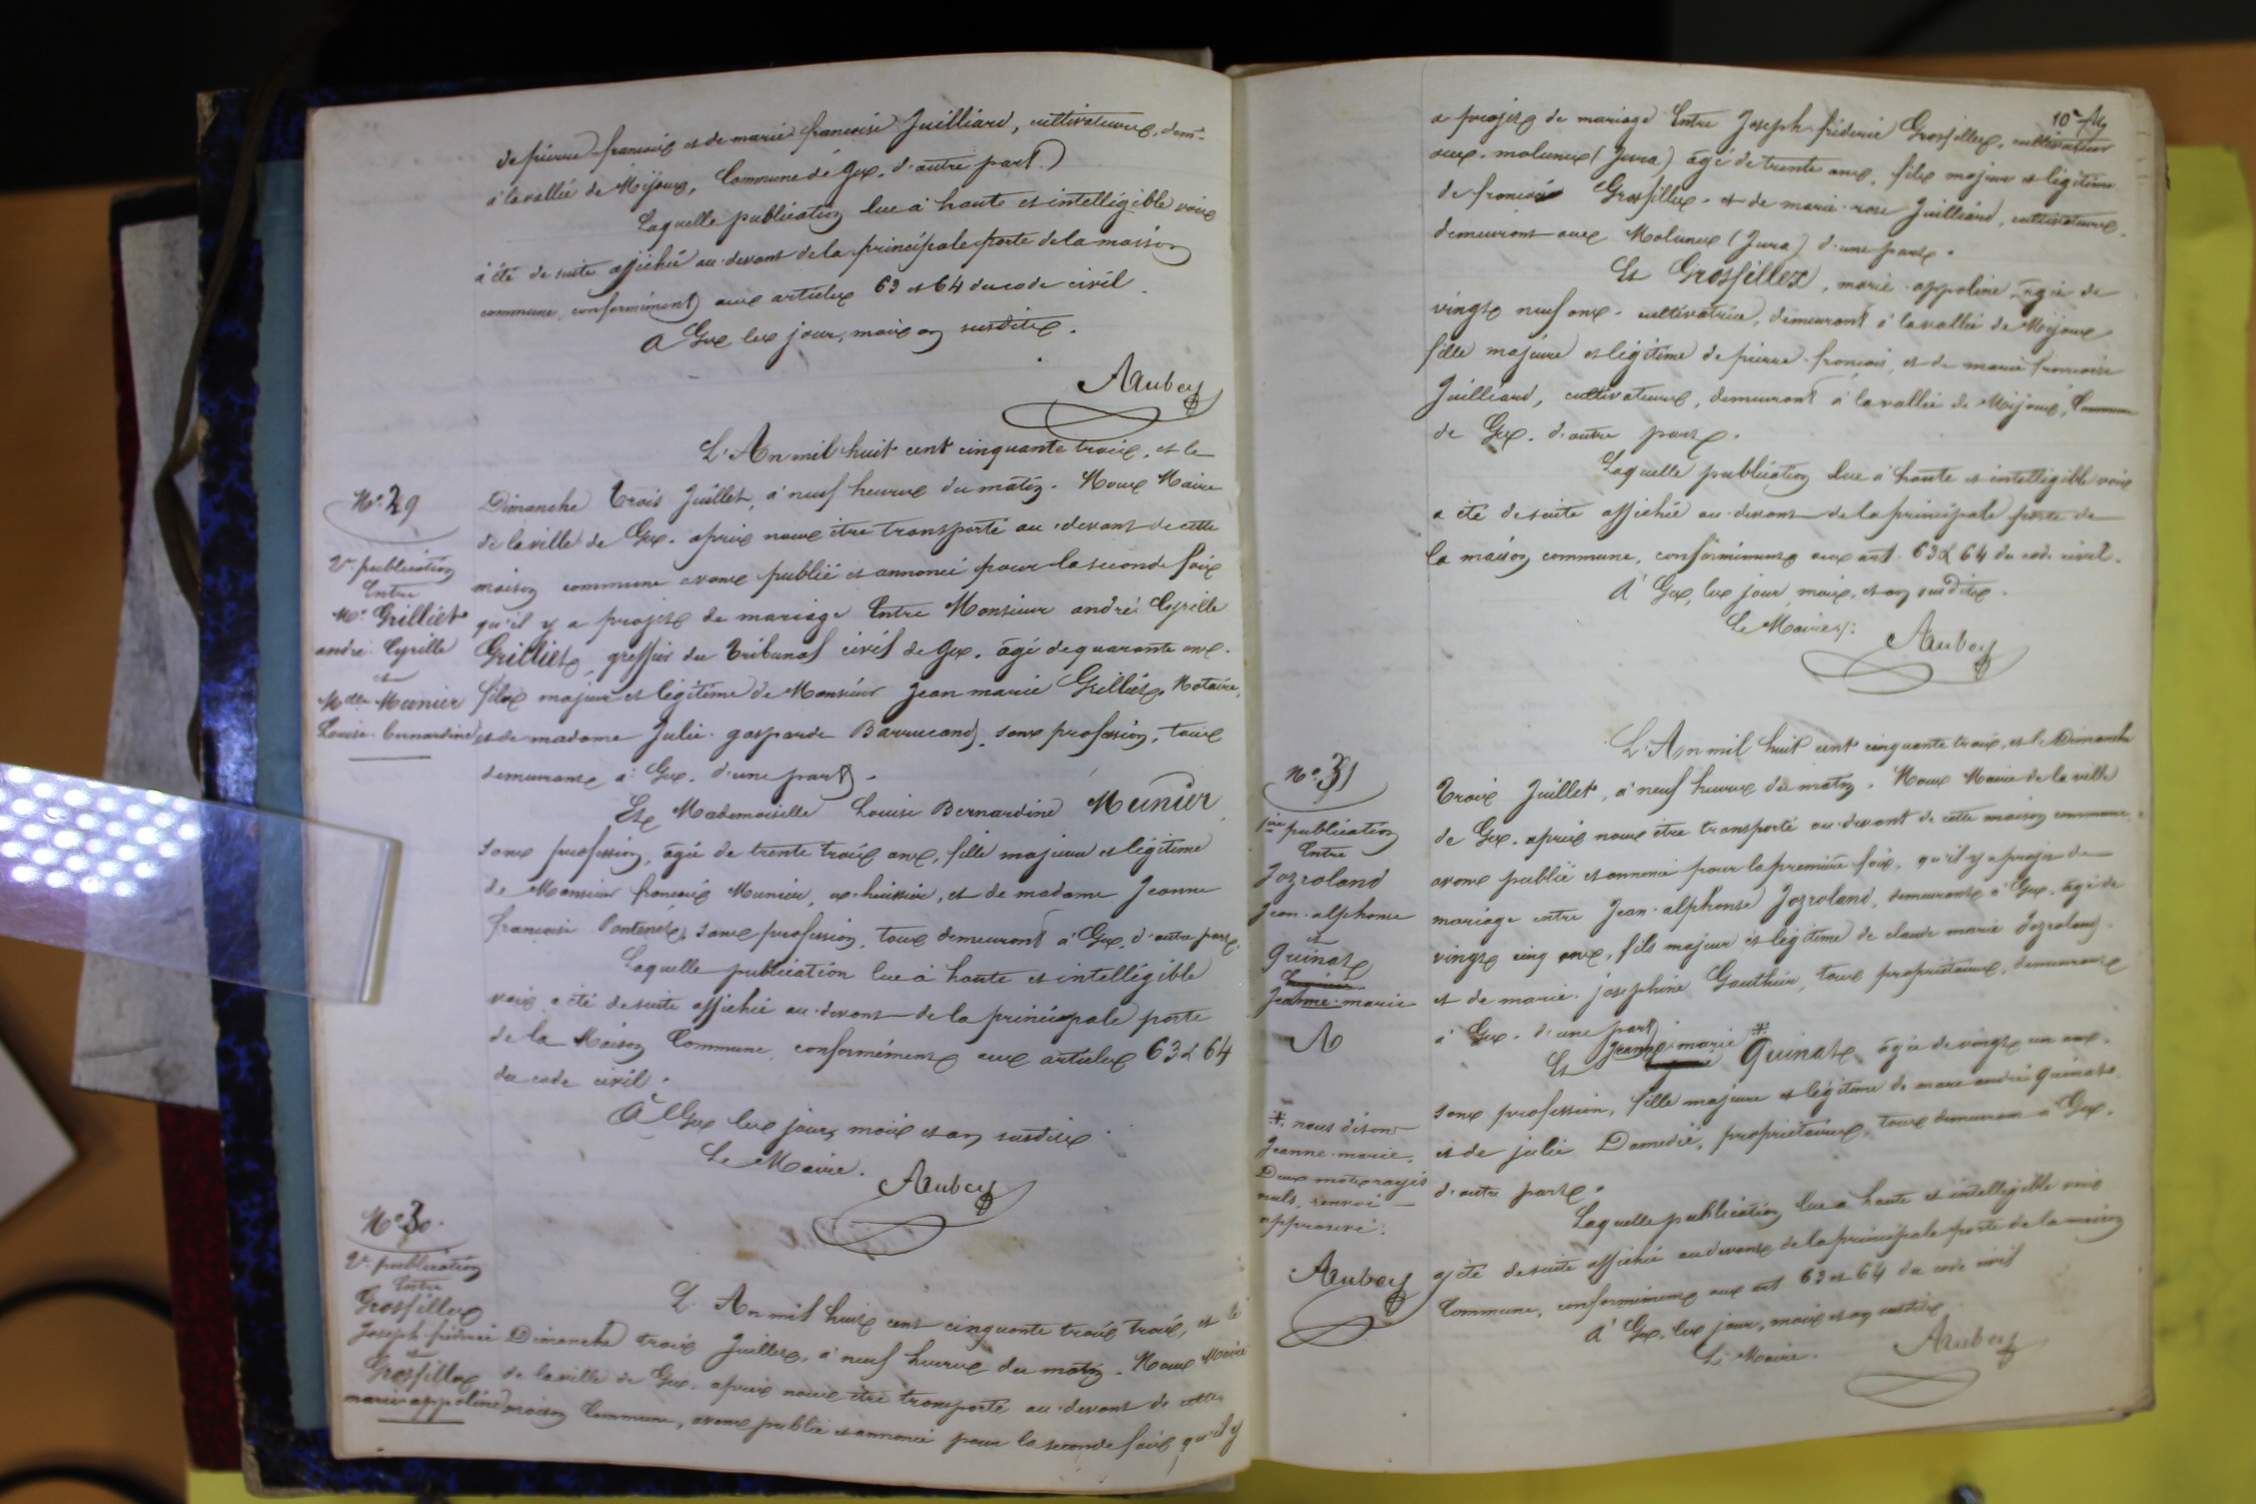 de pierre françois et de marie françoise Juilliard, cultivateurs, dem.t
à la vallée de Mijoux, Commune de Gex, d'autre part.
Laquelle publication lue à haute et intelligible voix
à été de suite affichée au-devant de la principale porte de la maison
commune, conformément aux articles 63 et 64 du code civil.
A Gex les jour, mois an susdits.
Aubery
N.° 29
2e publication
Entre
Mr Grilliet
andré Cyrille
et
Mdlle Munier
Louise bernardine
L'An mil huit cent cinquante trois, et le
Dimanche trois Juillet, à neuf heures du matin. Nous Maire
de la ville de Gex, après nous être transporté au-devant de cette
maison commune avons publié et annoncé pour la seconde fois
qu'il y a projet de mariage Entre Monsieur andré Cyrille
Grilliet, greffier du Tribunal civil de Gex, âgé de quarante ans.
fils majeur et légitime de Monsieur Jean marie Grilliet, Notaire,
et de madame Julie gasparde Barrucand, sans profession, tous
demeurant à Gex, d'une part.
Et Mademoiselle Louise Bernardine Munier,
sans profession, âgée de trente trois ans, fille majeure et légitime
de Monsieur françois Munier, ex-huissier, et de madame Jeanne
françoise sans profession, tous demeurant à Gex, d'autre part.
Laquelle publication lue à haute et intelligible
voix a été de suite affichée au-devant de la principale porte
de la Maison Commune, conformément aux articles 63 & 64
du code civil.
A Gex les jour, mois et an susdits
Le Maire.
Aubery
N.° 30.
2e publication
Entre
Grosfillex
Joseph-fréderic
et
Grosfillex
marie appoline
L'An mil huit cent cinquante trois trois, et le
Dimanche trois Juillet, à neuf heures du matin. Nous Maire
de la ville de Gex, après nous être transporté au-devant de cette
maison Commune, avons publié et annoncé pour la seconde fois, qu'il y
10e
a projet de mariage Entre Joseph fréderic Grosfillex, cultivateur
aux molunes (Jura) âgé de trente ans, fils majeur et légitime
de françois Grosfillex et de marie-rose Juilliard, cultivateurs,
demeurant aux Molunes (Jura) d'une part.
Et Grosfillex, marie-appoline, âgée de
vingt neuf ans, cultivatrice, demeurant à la vallée de Mijoux
fille majeure et légitime de pierre-françois, et de marie françoise
Juilliard, cultivateurs, demeurant à la vallée de Mijoux, Commune
de Gex, d'autre part.
Laquelle publication lue à haute et intelligible voix
a été de suite affichée au-devant de la principale porte de
la maison commune, conformément aux art. 63 & 64 du code civil.
A Gex, les jour mois, et an susdits.
Le Maire
Aubery
N.° 31
1ère publication
Entre
Jozroland
Jean-alphonse
et
Quinat
Jeanne-marie
L'An mil huit cent cinquante trois, et le Dimanche
Trois Juillet, à neuf heures du matin. Nous Maire de la ville
de Gex, après nous être transporté au-devant de cette maison commune,
avons publié et annoncé pour la première fois, qu'il y a projet de
mariage entre Jean-alphonse Jozroland, demeurant à Gex, âgé de
vingt cinq ans, fils majeur et légitime de claude marie Jozroland
et de marie-josephine Gauthier, tous propriétaires, demeurant
à Gex, d'une part,
Et Jeanne-marie * Quinat, âgée de vingt un ans,
sans profession, fille majeure et légitime de marc andré Quinat
et de julie Damedié, propriétaires, tous demeurant à Gex,
d'autre part.
* nous disons
Jeanne-marie,
Deux mots rayés
nuls, renvoi
approuvé.
Aubery
Laquelle publication lue à haute et intelligible voix
a été de suite affichée au devant de la principale porte de la maison
Commune, conformément aux art 63 et 64 du code civil
A Gex, les jour, mois et an susdits.
Le Maire.
Aubery